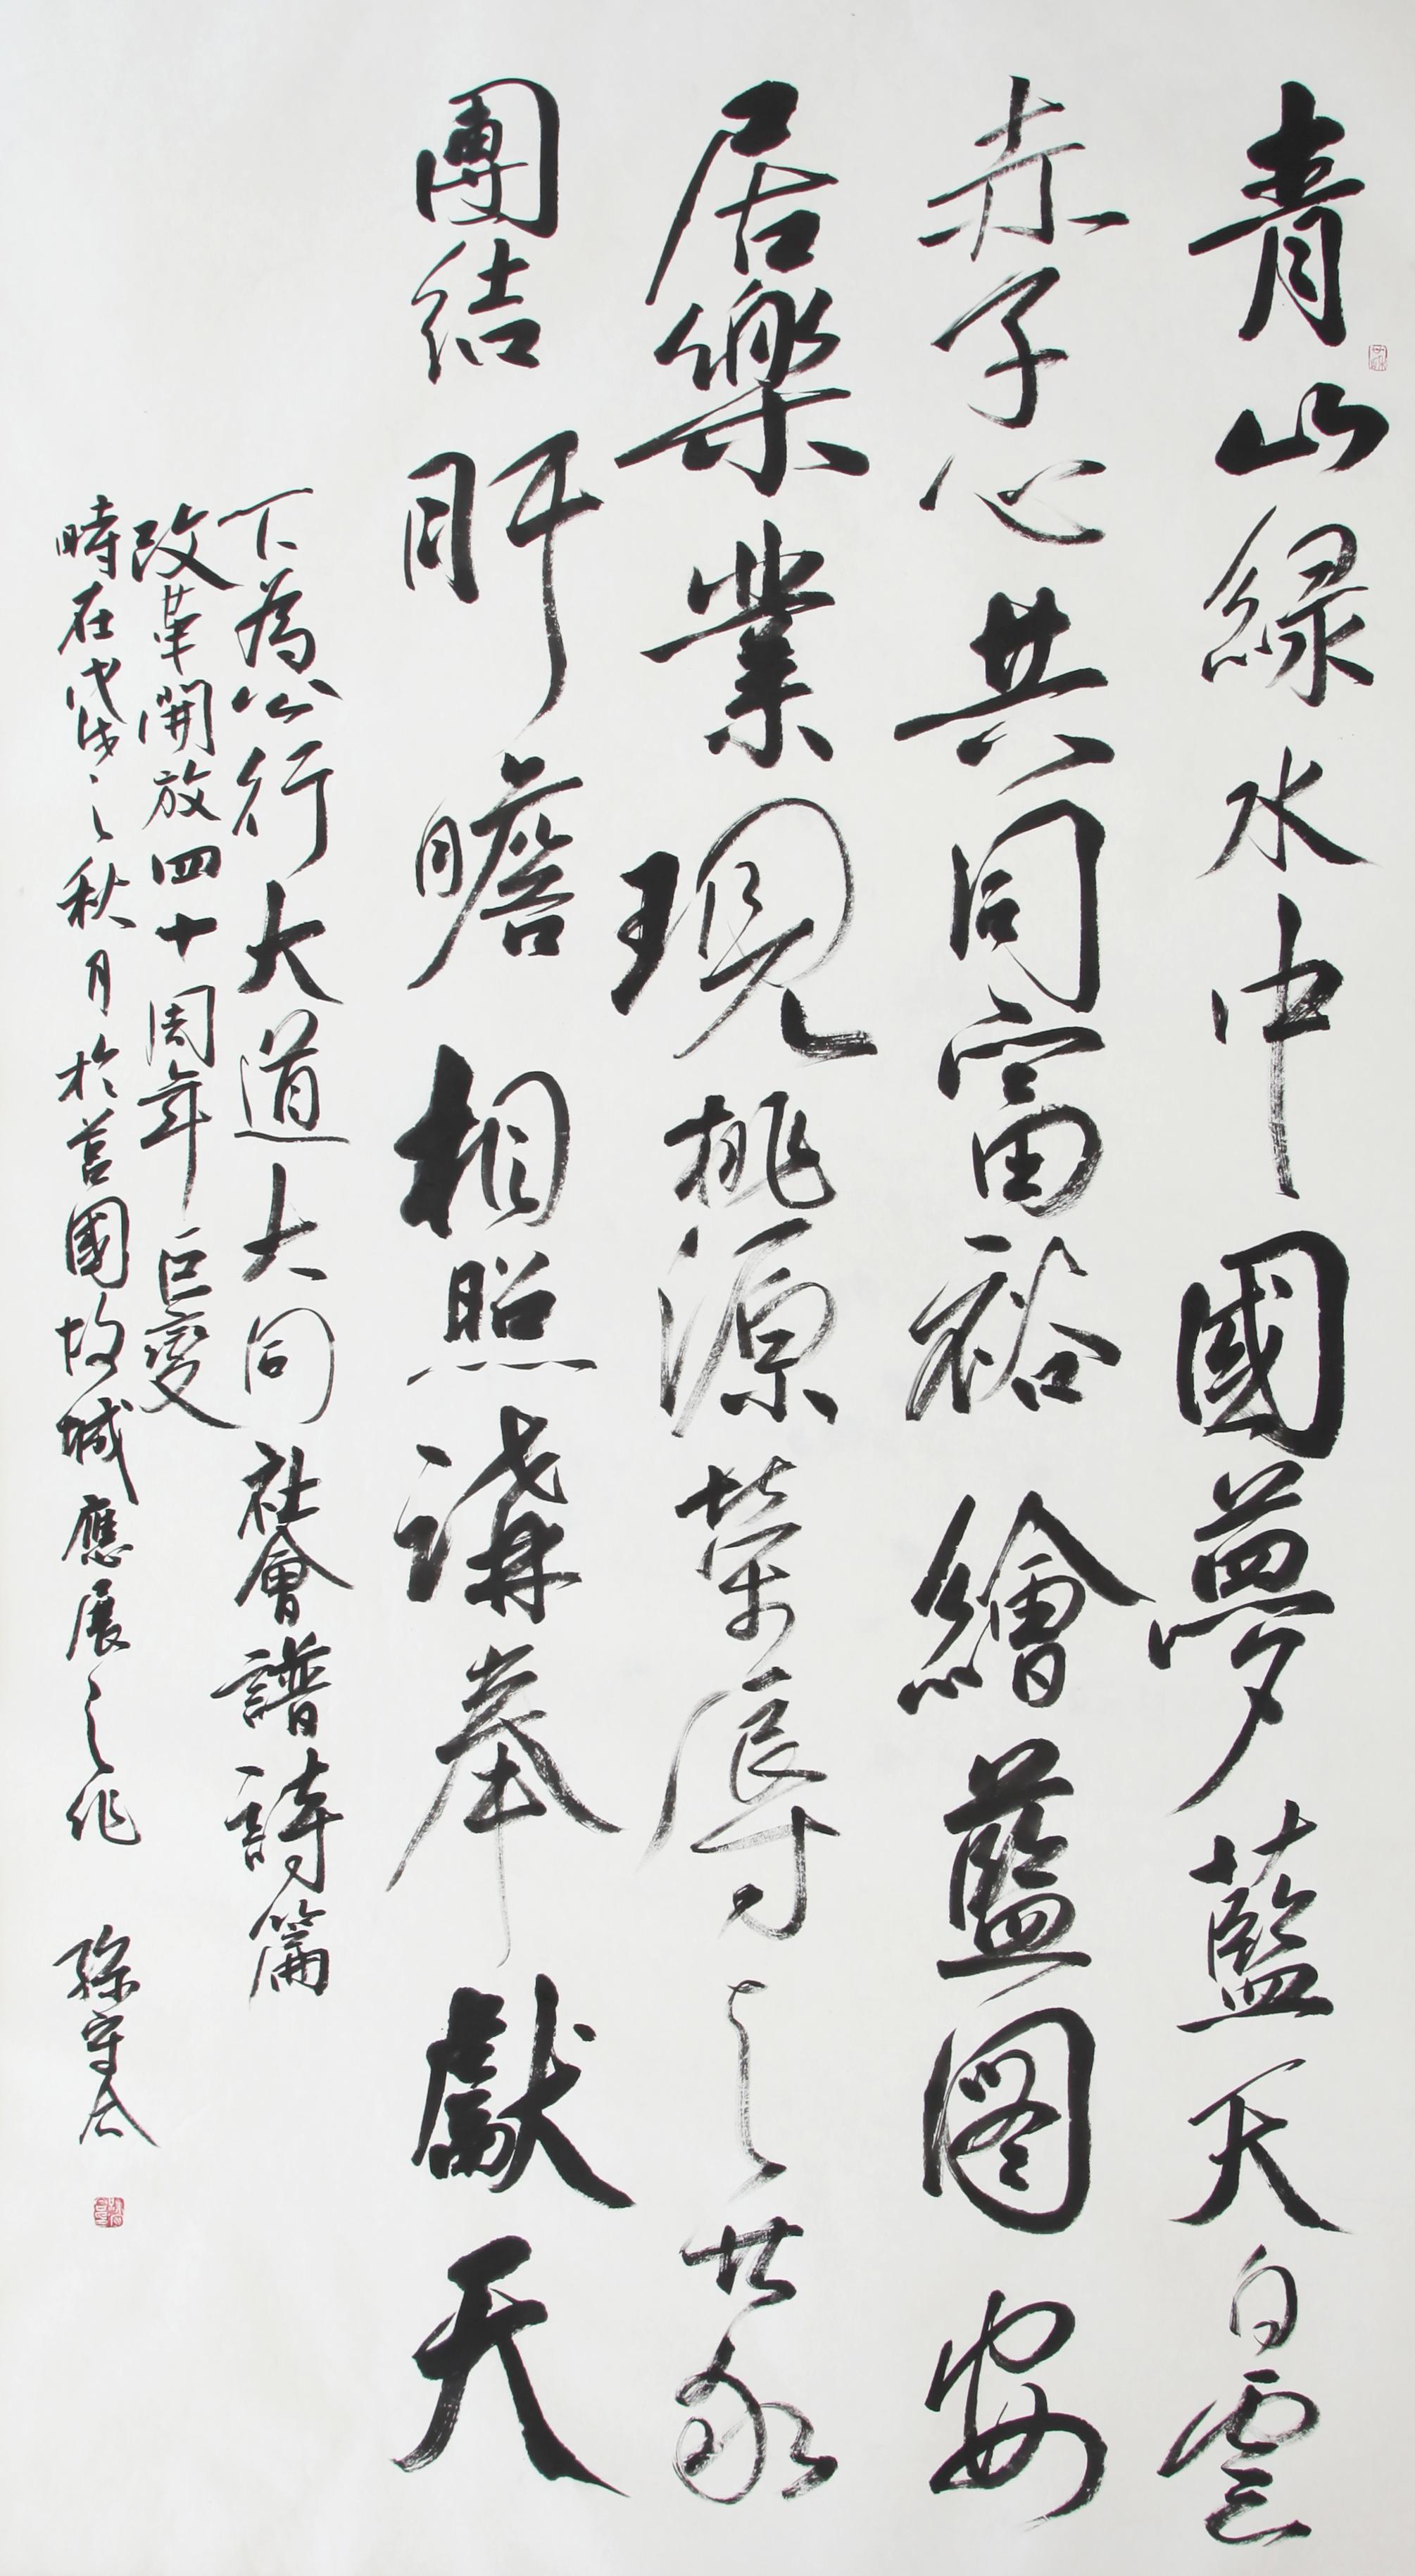 青山緑水中國夢藍天白雲
赤子心共同富裕繪藍圖安
居樂業現桃源榮辱之共永
團結肝膽相照講奉獻天
下為公行大道大同社會譜詩篇
改革開放四十周年巨變
時在戊戌之秋月於莒國故城應展之作 孫守合